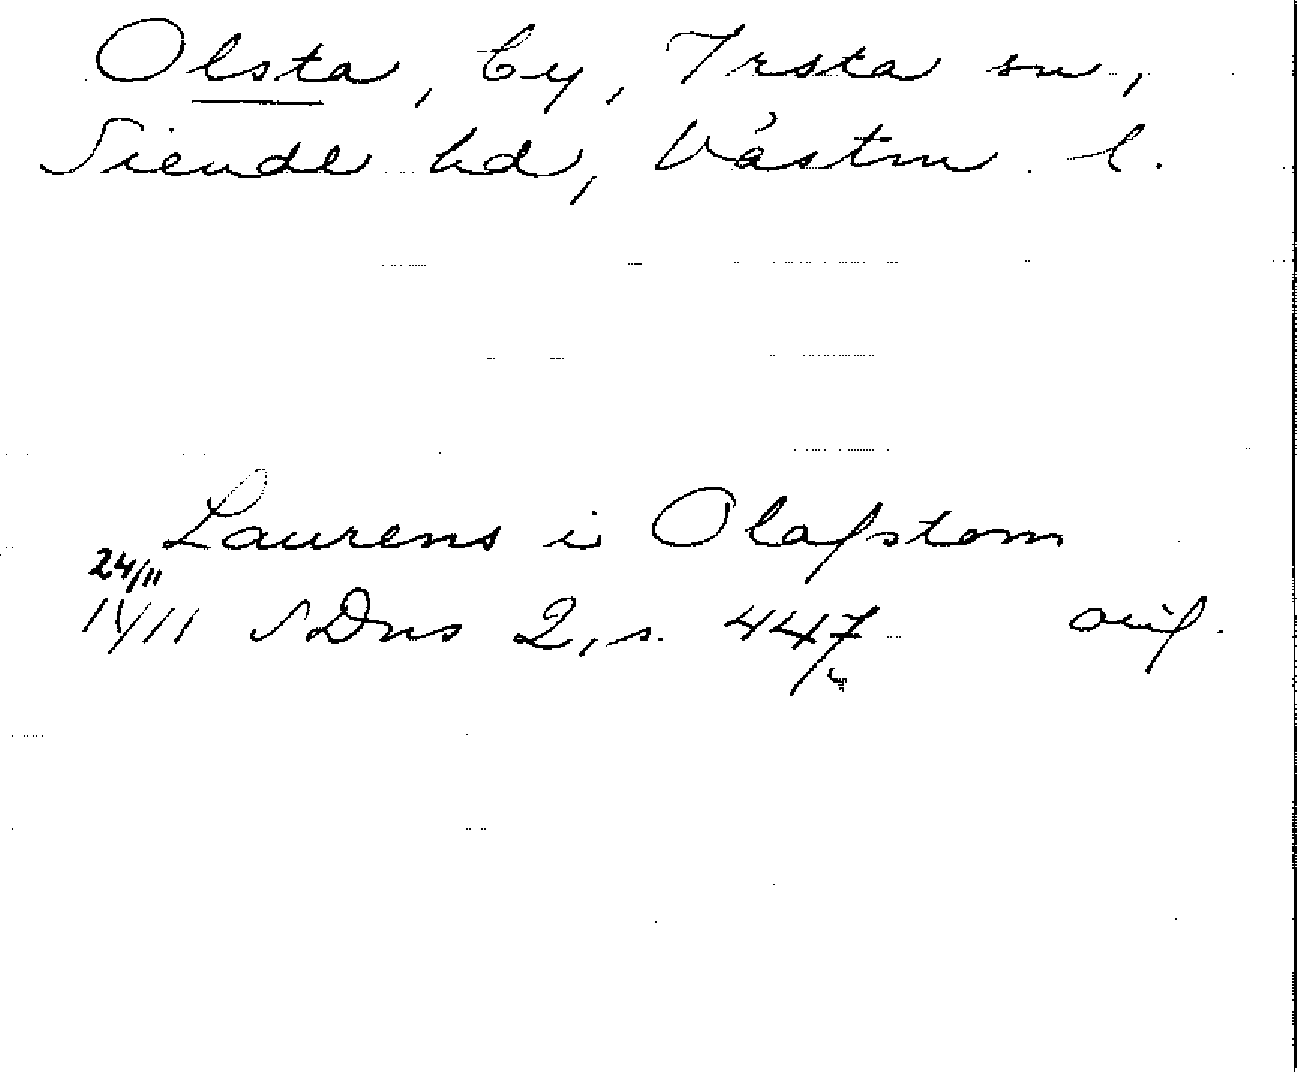 Olsta, by, Irsta sn,
Siende hd, Västm l.
Laurens i Olafstom
24/11
14/11 SDns 2, s. 447 orig.